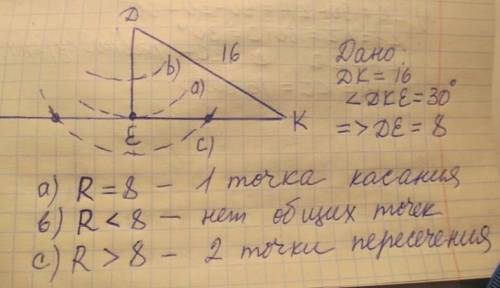 D
16
b)
a)
E
c)
K
Дано:
DK = 16
∠DKE = 30°
=> DE = 8
a) R = 8 – 1 точка касания
b) R < 8 – нет общих точек
c) R > 8 – 2 точки пересечения